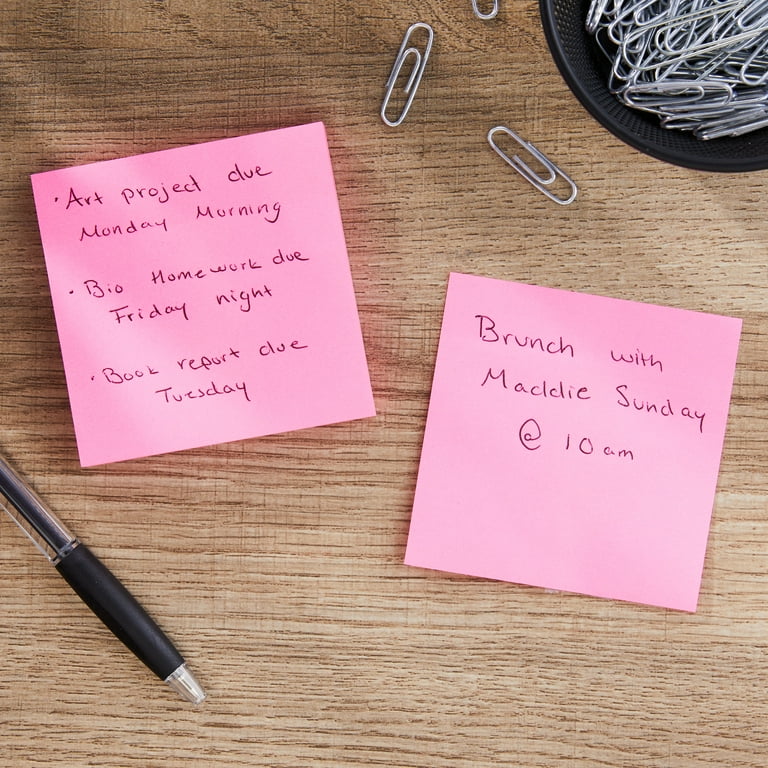 · Art project due
Monday Morning
· Bio Homework due
Friday night
· Book report due
Tuesday
Brunch with
Maddie Sunday
@ 10 am